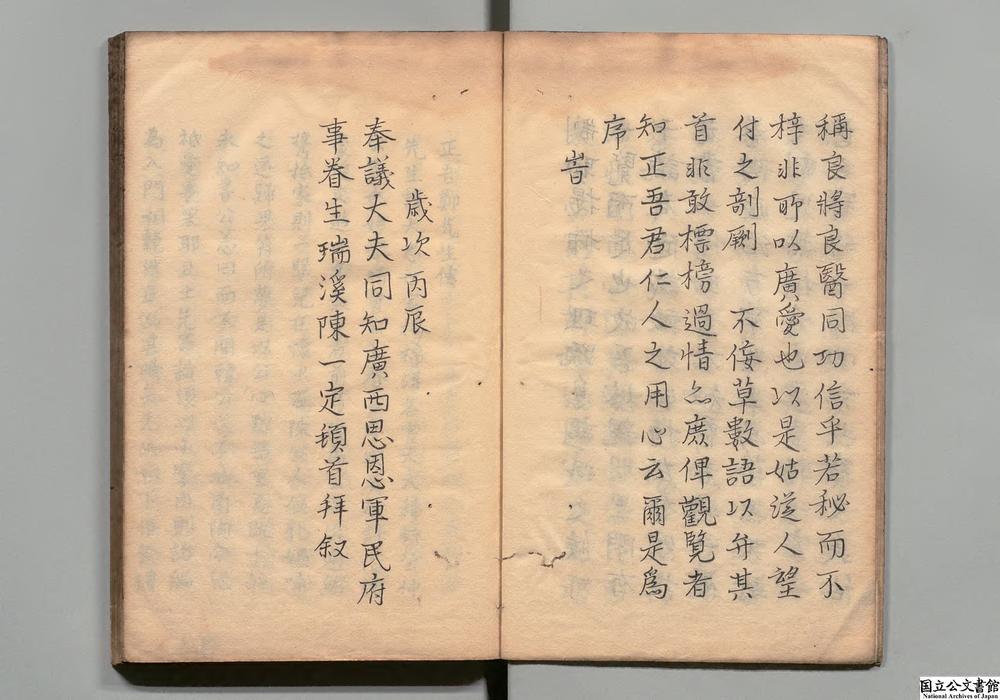 稱良將良醫同功信乎若秘而不
梓非所以廣愛也以是姑從人望
付之剞劂　不佞草數語以弁其
首非敢標榜過情亦庶俾觀覽者
知正吾君仁人之用心云爾是爲
序
旹
歲次丙辰
奉議大夫同知廣西思恩軍民府
事眷生瑞溪陳一定頓首拜叙
国立公文書館
National Archives of Japan